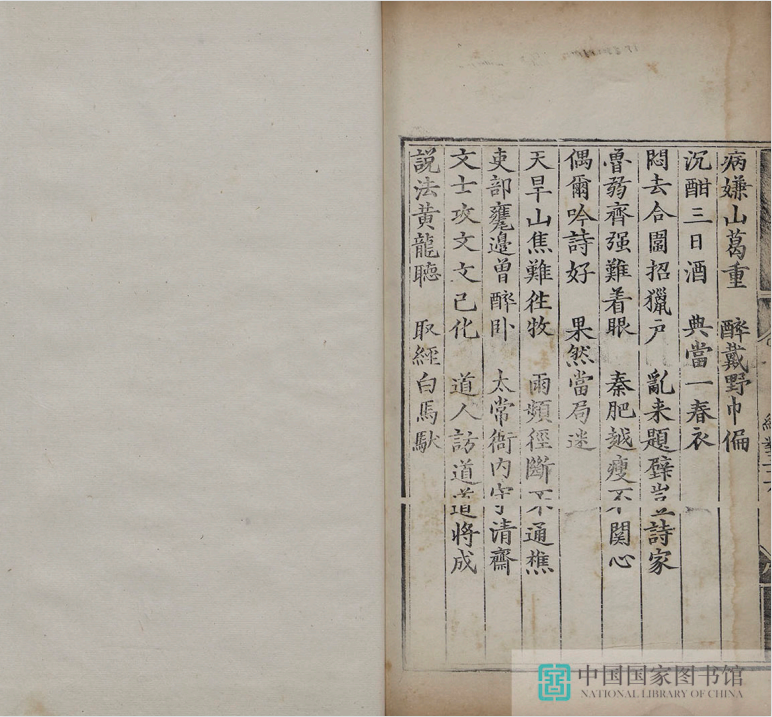 病嫌山葛重　醉戴野巾偏
沉酣三日酒　典當一春衣
悶去合圍招獵戶　亂来題壁豈詩家
魯弱齊强難着眼　秦肥越瘦不關心
偶爾吟詩好　果然當局迷
天旱山焦難徃牧　雨頻徑斷不通樵
吏部甕邊曾醉卧　太常衙内守清齋
文士攻文文已化　道人訪道道將成
說法黃龍聽　取經白馬馱
中国国家图书馆
NATIONAL LIBRARY OF CHINA